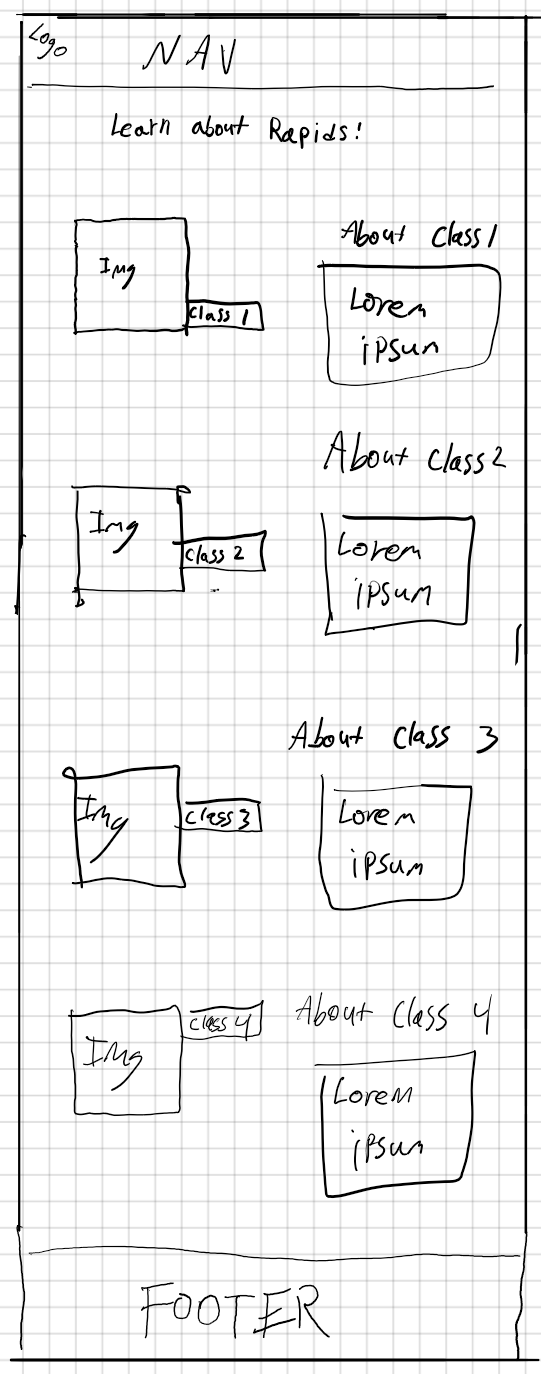 Logo
NAV
Learn about Rapids!
About Class 1
Img
Class 1
Lorem
ipsum
About Class 2
Img
Class 2
Lorem
ipsum
About Class 3
Img
Class 3
Lorem
ipsum
About Class 4
Img
Class 4
Lorem
ipsum
FOOTER